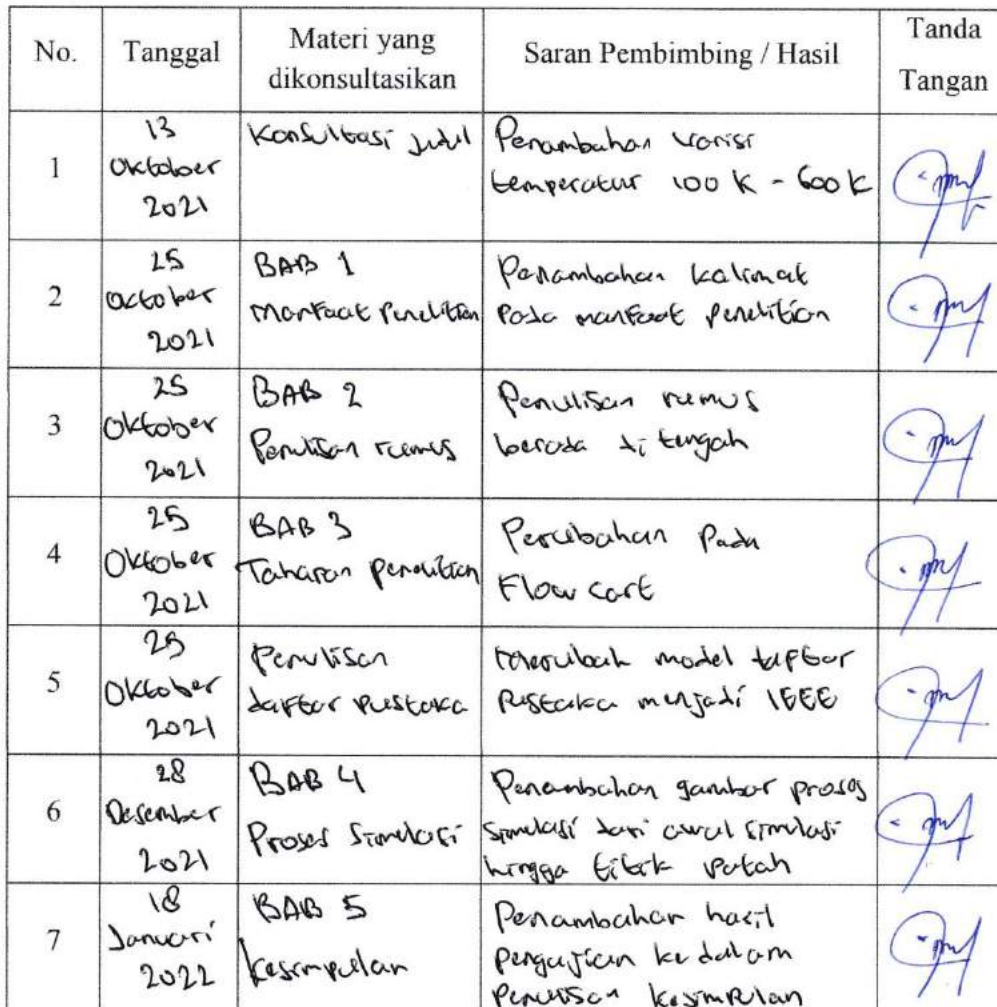 No.
Tanggal
Materi yang
dikonsultasikan
Saran Pembimbing / Hasil
Tanda
Tangan
1
13
Oktober
2021
Konsultasi judul
Penambahan variasi
temperatur 100 K - 600 K
2
25
Oktober
2021
BAB 1
Manfaat Penelitian
Penambahan kalimat
Pada manfaat penelitian
3
25
Oktober
2021
BAB 2
Penulisan rumus
Penulisan rumus
berada di tengah
4
25
Oktober
2021
BAB 3
Tahapan penelitian
Perubahan Pada
Flow cart
5
25
Oktober
2021
Penulisan
daftar pustaka
Merubah model daftar
Pustaka menjadi IEEE
6
28
Desember
2021
BAB 4
Proses Simulasi
Penambahan gambar proses
Simulasi dari awal simulasi
hingga titik patah
7
18
Januari
2022
BAB 5
Kesimpulan
Penambahan hasil
Pengujian kedalam
Penulisan kesimpulan